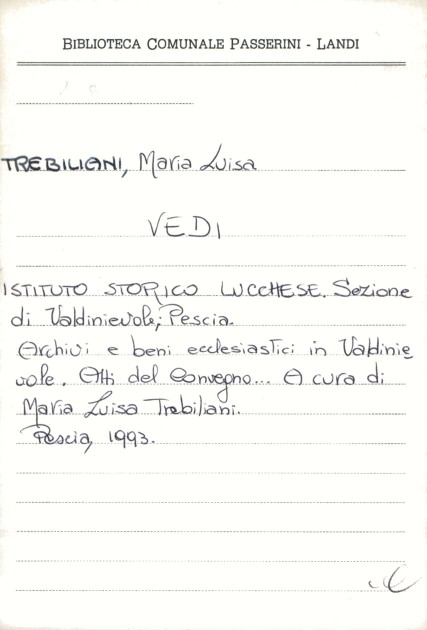 BIBLIOTECA COMUNALE PASSERINI - LANDI
TREBILIANI, Maria Luisa
VEDI
ISTITUTO STORICO LUCCHESE. Sezione
di Valdinievole; Pescia.
Archivi e beni ecclesiastici in Valdinie
vole. Atti del Convegno... A cura di
Maria Luisa Trebiliani.
Pescia, 1993.